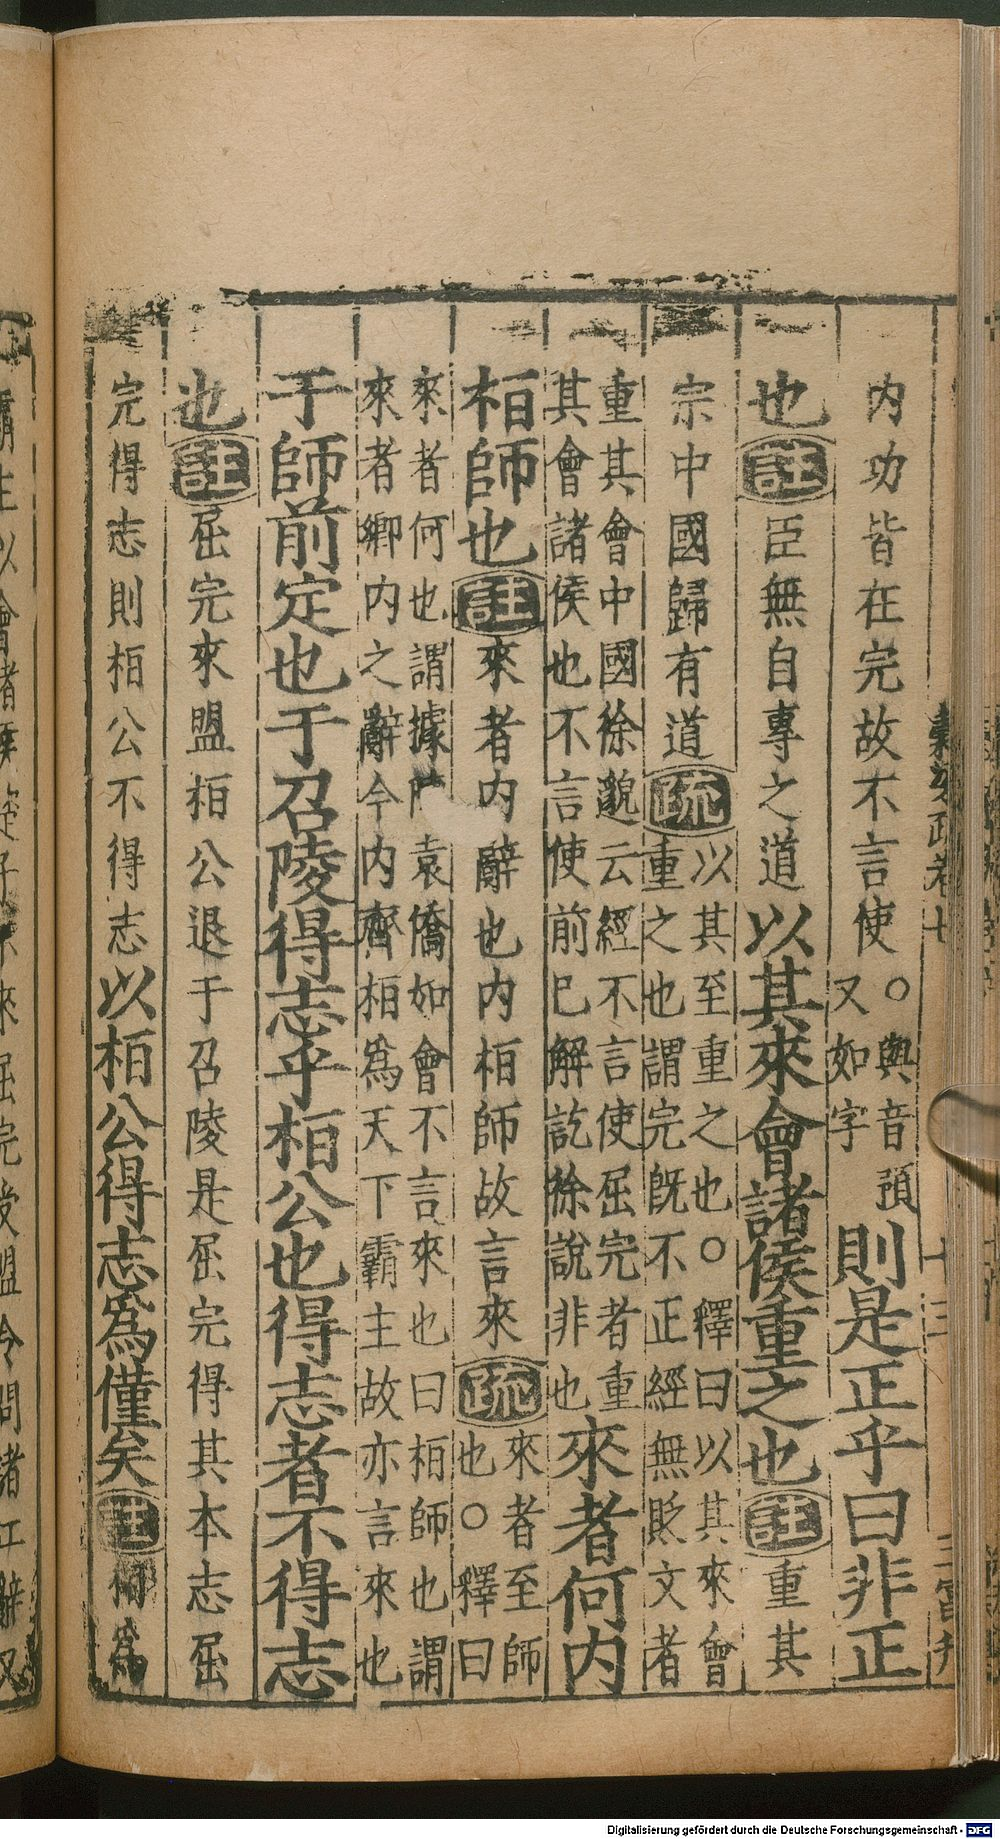 内功皆在完故不言使○與音預又如字則是正乎曰非正
也註臣無自專之道以其來會諸侯重之也註重其
宗中國歸有道疏以其至重之也○釋曰以其來會重之也謂完既不正經無貶文者
重其會中國徐邈云經不言使屈完者重其會諸侯也不言使前已解訖徐說非也來者何内
桓師也註來者内辭也内桓師故言來疏來者至師也○釋曰
來者何也謂據袁僑如會不言來也曰桓師也謂來者鄉内之辭今内齊桓爲天下霸主故亦言來也
于師前定也于召陵得志乎桓公也得志者不得志
也註屈完來盟桓公退于召陵是屈完得其本志屈
完得志則桓公不得志以桓公得志爲僅矣註爲
Digitalisierung gefördert durch die Deutsche Forschungsgemeinschaft - DFG